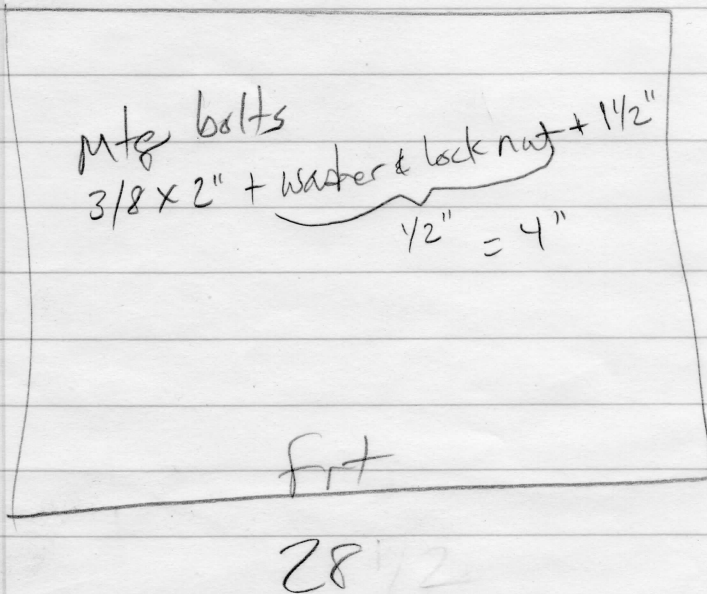 Mtg bolts
3/8 x 2" + washer & lock nut + 1 1/2"
1/2" = 4"
frt
28 1/2